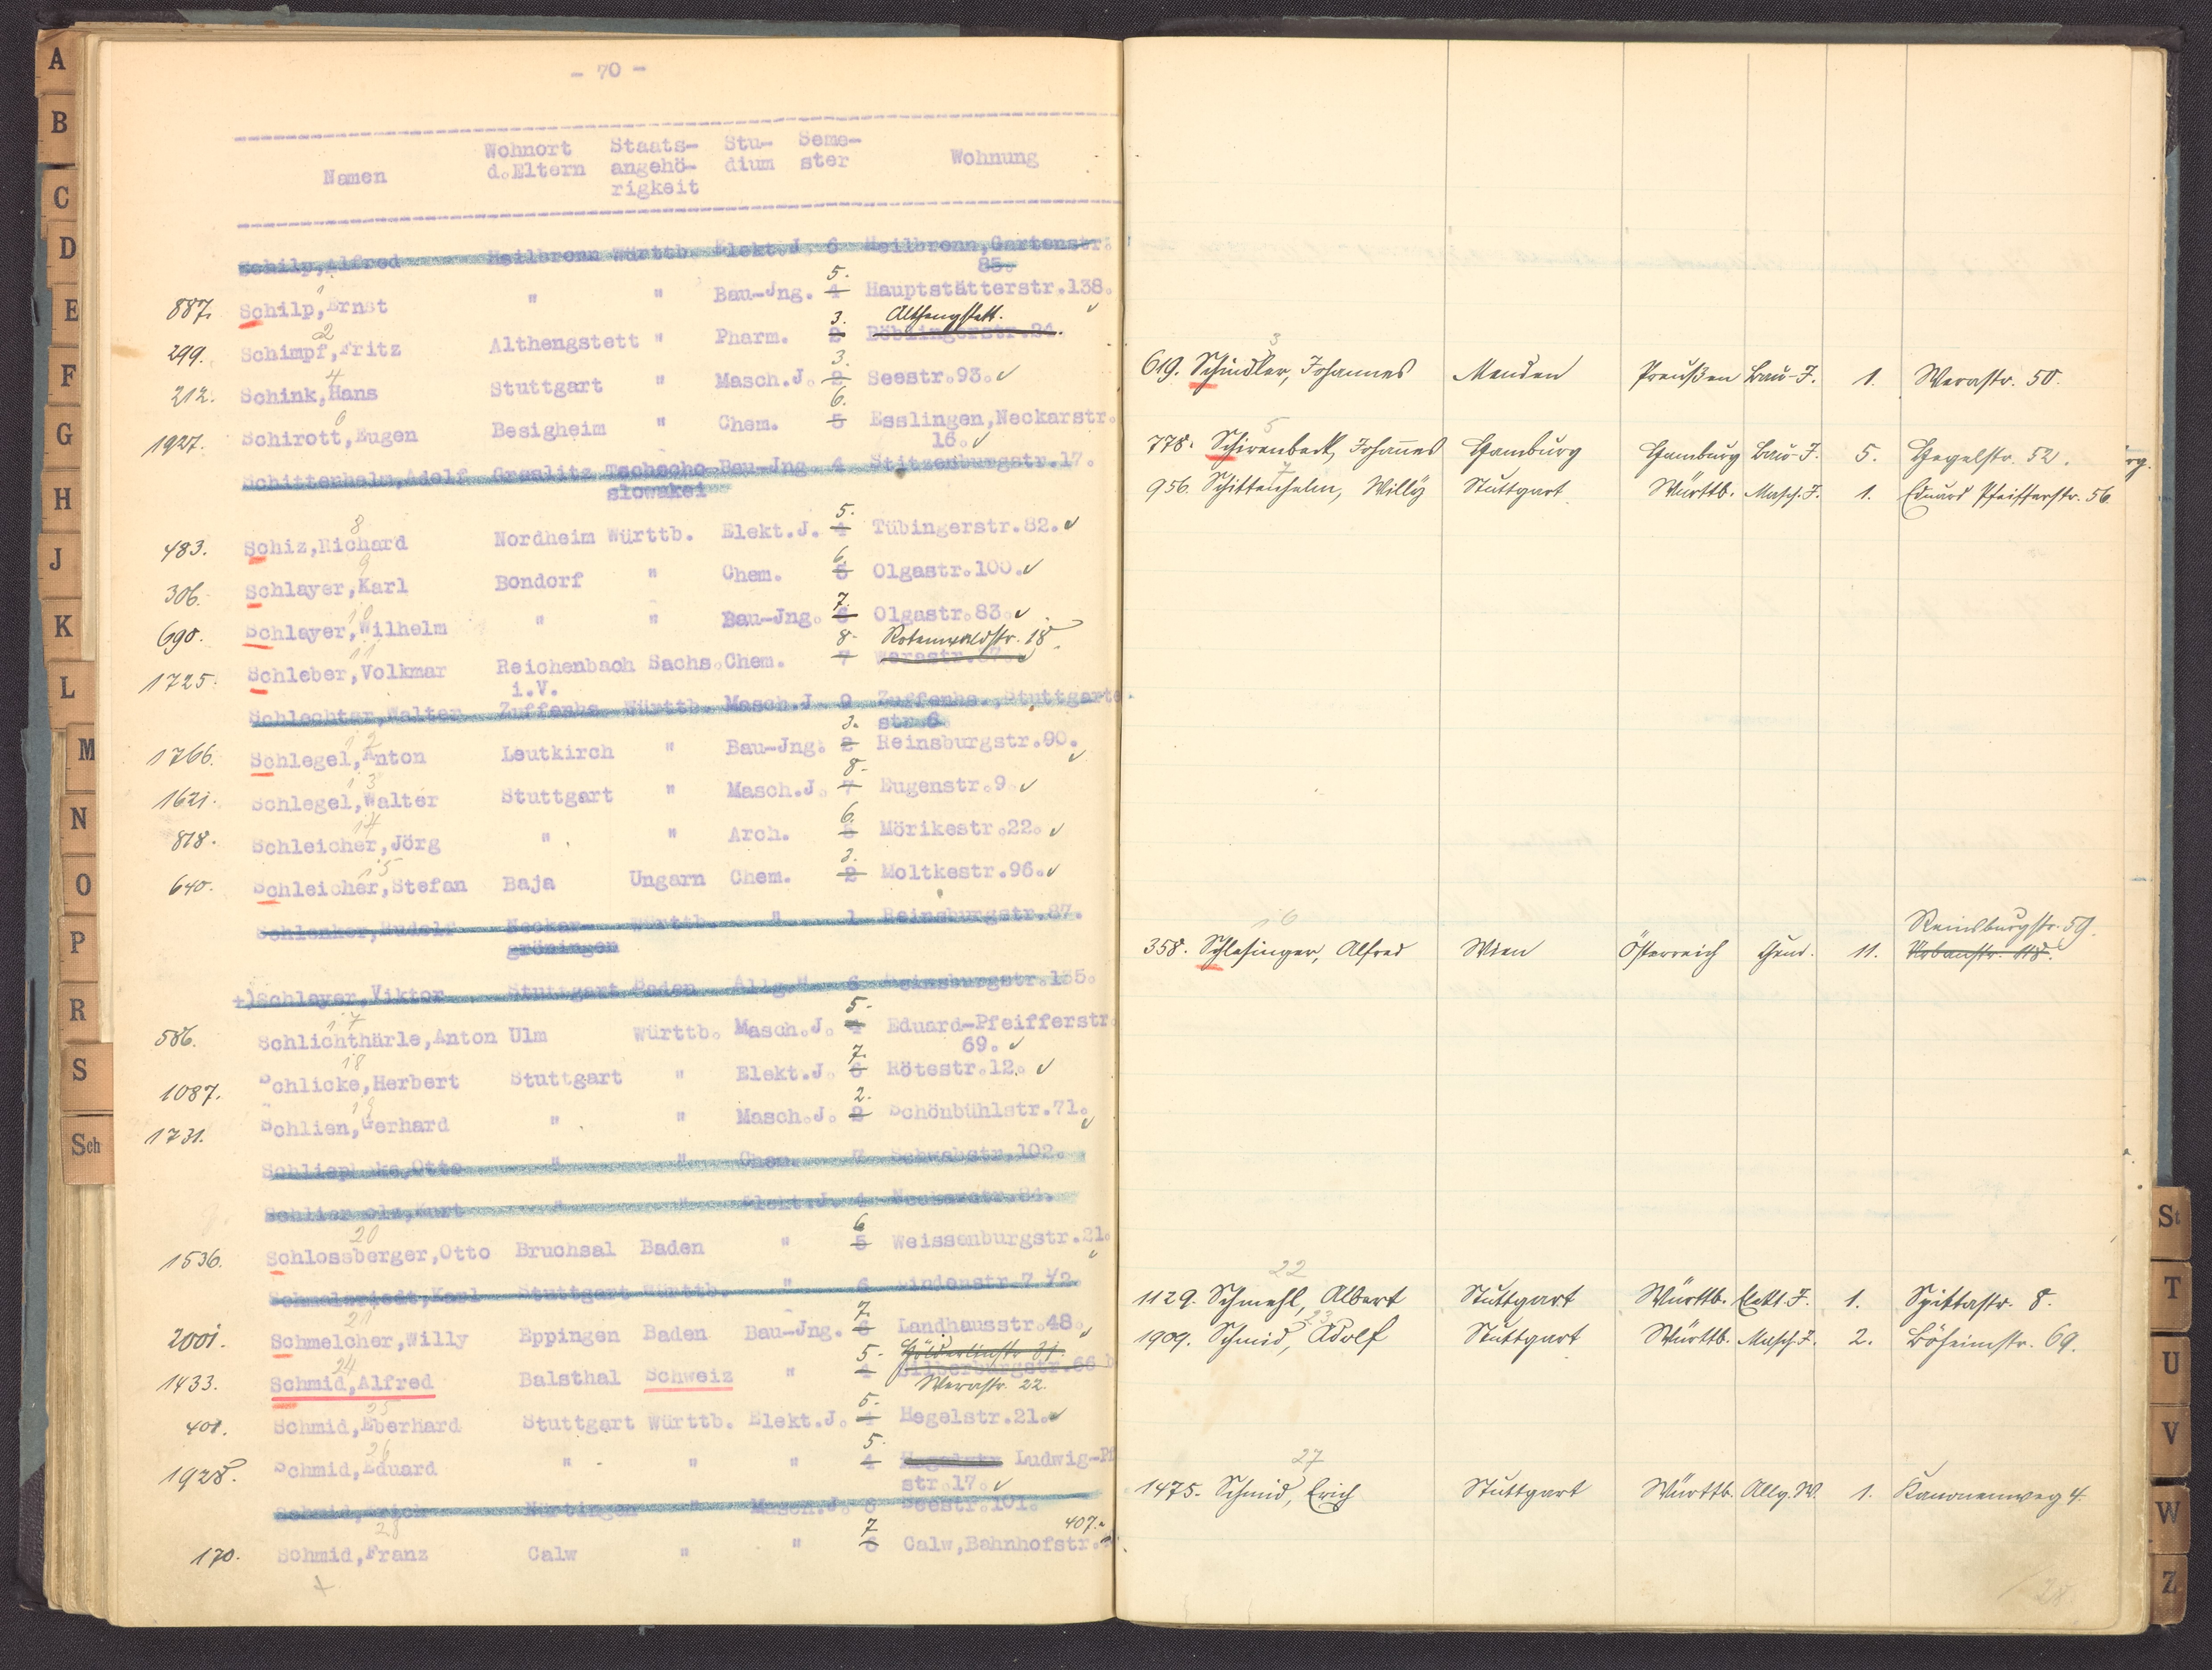 - 70 -
Namen Wohnort d.Eltern Staats-angehö-rigkeit Stu-dium Seme-ster Wohnung
Schilp,Alfred Heilbronn Württb. Elekt.J. 6 Heilbronn,Gartenstr.
85.
887. Schilp,Ernst 1 " " Bau-Jng. 4 5. Hauptstätterstr.138.
299. Schimpf,Fritz 2 Althengstett " Pharm. 2 3. Böblingerstr.24. Althengstett.
212. Schink,Hans 4 Stuttgart " Masch.J. 2 3. Seestr.93.
1927. Schirott,Eugen 6 Besigheim " Chem. 5 6. Esslingen,Neckarstr.
16.
Schittenhelm,Adolf Graslitz Tschecho- Bau-Jng. 4 Stitzenburgstr.17.
slowakei
483. Schiz,Richard 8 Nordheim Württb. Elekt.J. 4 5. Tübingerstr.82.
306. Schlayer,Karl 9 Bondorf " Chem. 5 6. Olgastr.100.
690. Schlayer,Wilhelm 10 " " Bau-Jng. 6 7. Olgastr.83.
1725. Schleber,Volkmar 11 Reichenbach Sachs. Chem. 7 8. Rotenwaldstr. 18.
i.V.
Schlechter,Walter Zuffenhs. Württb. Masch.J. 9 Zuffenhs.,Stuttgarte
str.6
1766. Schlegel,Anton 12 Leutkirch " Bau-Jng. 2 3. Reinsburgstr.90.
1621. Schlegel,Walter 13 Stuttgart " Masch.J. 7 8. Eugenstr.9.
818. Schleicher,Jörg 14 " " Arch. 5 6. Mörikestr.22.
640. Schleicher,Stefan 15 Baja Ungarn Chem. 2 3. Moltkestr.96.
Schlenker,Rudolf Neckar- Württb. " 1 Reinsburgstr.87.
gröningen
+)Schleyer,Viktor Stuttgart Baden Allg.W. 6 Reinsburgstr.135.
586. Schlichthärle,Anton 17 Ulm Württb. Masch.J. 4 5. Eduard-Pfeifferstr.
69.
1087. Schlicke,Herbert 18 Stuttgart " Elekt.J. 6 7. Rötestr.12.
1731. Schlien,Gerhard 19 " " Masch.J. 2 2. Schönbühlstr.71.
Otto " " Chem. 7 Schwabstr.102.
Kurt " " Elekt.J. 4 Neckarstr.84.
1536. Schlossberger,Otto 20 Bruchsal Baden " 5 6 Weissenburgstr.21.
Karl Stuttgart Württb. " 6 Lindenstr.7 1/2.
2001. Schmelcher,Willy 21 Eppingen Baden Bau-Jng. 6 7. Landhausstr.48.
1433. Schmid,Alfred 24 Balsthal Schweiz " 4 5. Hölderlinstr 31. Silberburgstr.66 b
Werastr. 22.
401. Schmid,Eberhard 25 Stuttgart Württb. Elekt.J. 4 5. Hegelstr.21.
1928. Schmid,Eduard 26 " " " 4 5. Hegelstr Ludwig-Pf
str.17.
Schmid,Erich Nürtingen " Masch.J. 6 Seestr.101.
170. Schmid,Franz 28 Calw " " 6 7 Calw,Bahnhofstr. 407.
+
619. Schindler, Johannes 3 Menden Preußen Bau-J. 1. Werastr. 50.
778. Schirenbeck, Johannes 5 Hamburg Hamburg Bau-J. 5. Hegelstr. 52.
956. Schittenhelm, Willy 7 Stuttgart Württb. Masch.J. 1. Eduard Pfeifferstr. 56
358. Schlesinger, Alfred 16 Wien Österreich Chem. 11. Urbanstr. 118. Reinsburgstr. 59.
1129. Schmehl, Albert 22 Stuttgart Württb. Elekt.J. 1. Spittastr. 8.
1909. Schmid, Adolf 23 Stuttgart Württb. Masch.J. 2. Böheimstr. 69.
1475. Schmid, Erich 27 Stuttgart Württb. Allg.W. 1. Kanonenweg 4.
28
A
B
C
D
E
F
G
H
J
K
L
M
N
O
P
R
S
Sch
St
T
U
V
W
Z